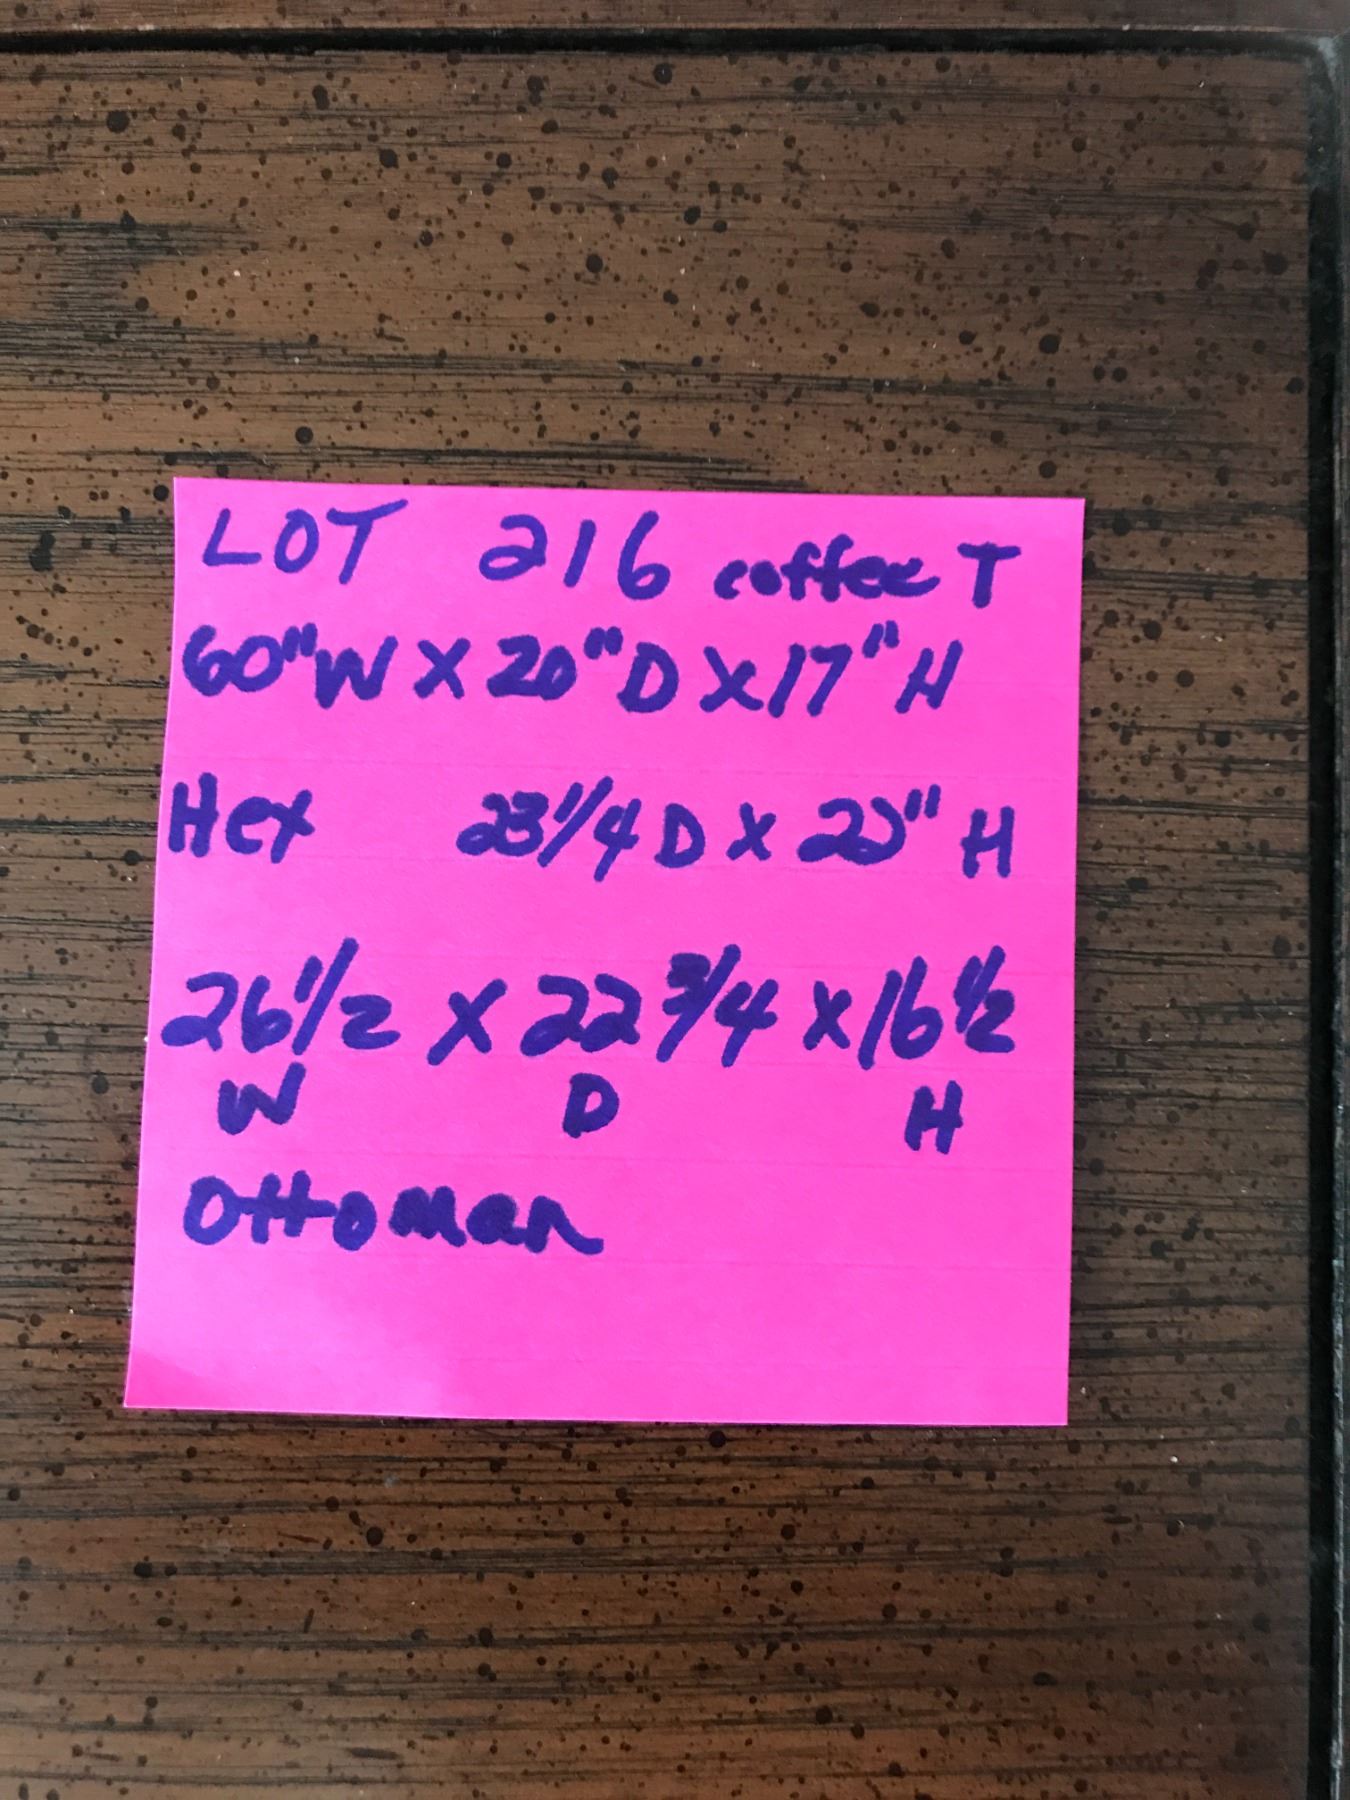 LOT 216 coffee T
60"W X 20"D X 17"H
Hex 23 1/4 D X 20" H
26 1/2 X 22 3/4 X 16 1/2
W D H
Ottoman